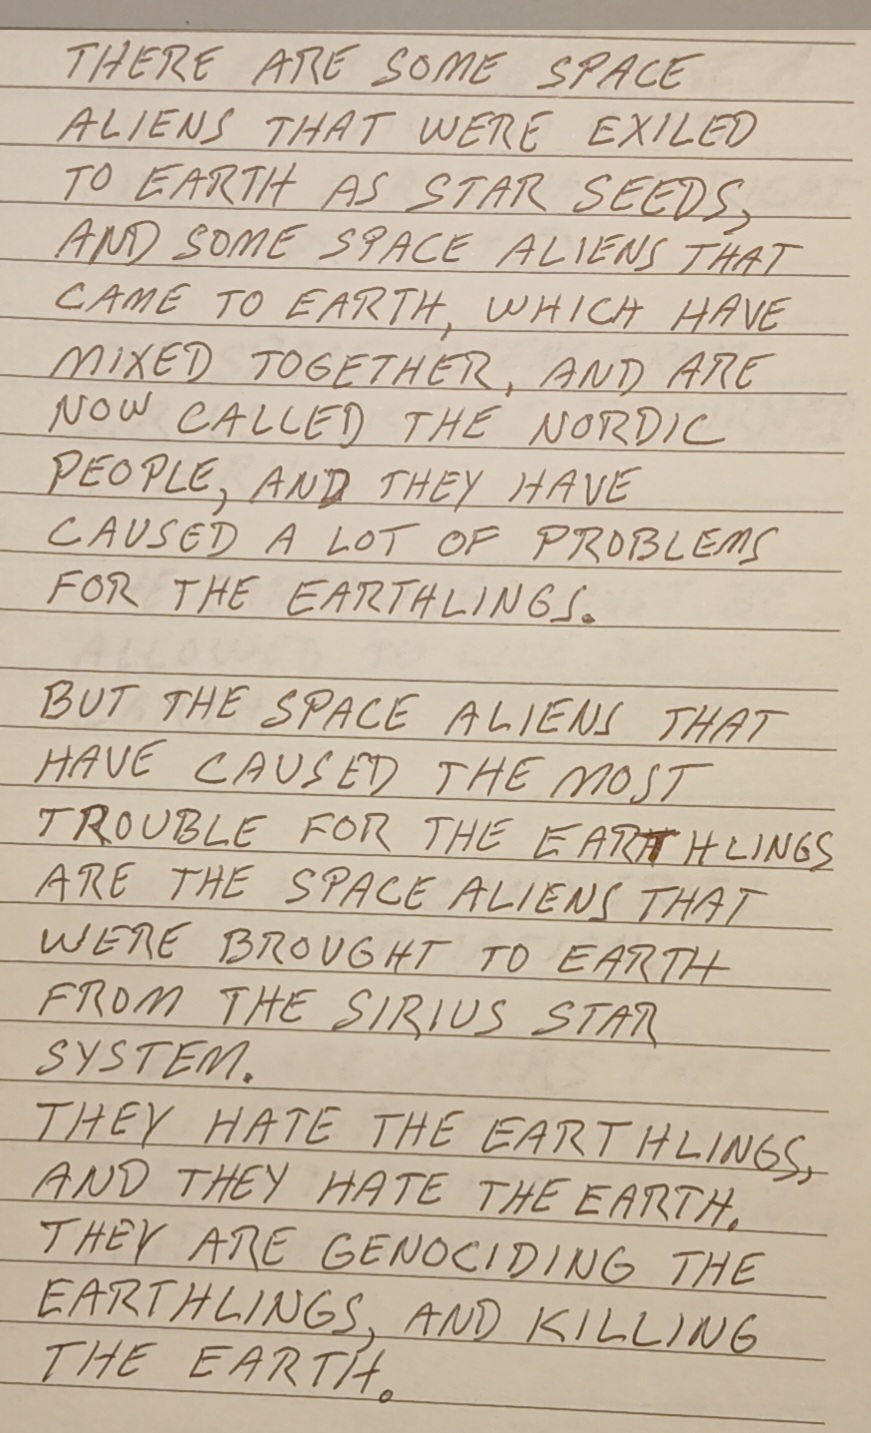 THERE ARE SOME SPACE
ALIENS THAT WERE EXILED
TO EARTH AS STAR SEEDS,
AND SOME SPACE ALIENS THAT
CAME TO EARTH, WHICH HAVE
MIXED TOGETHER, AND ARE
NOW CALLED THE NORDIC
PEOPLE, AND THEY HAVE
CAUSED A LOT OF PROBLEMS
FOR THE EARTHLINGS.
BUT THE SPACE ALIENS THAT
HAVE CAUSED THE MOST
TROUBLE FOR THE EARTHLINGS
ARE THE SPACE ALIENS THAT
WERE BROUGHT TO EARTH
FROM THE SIRIUS STAR
SYSTEM.
THEY HATE THE EARTHLINGS,
AND THEY HATE THE EARTH.
THEY ARE GENOCIDING THE
EARTHLINGS, AND KILLING
THE EARTH.